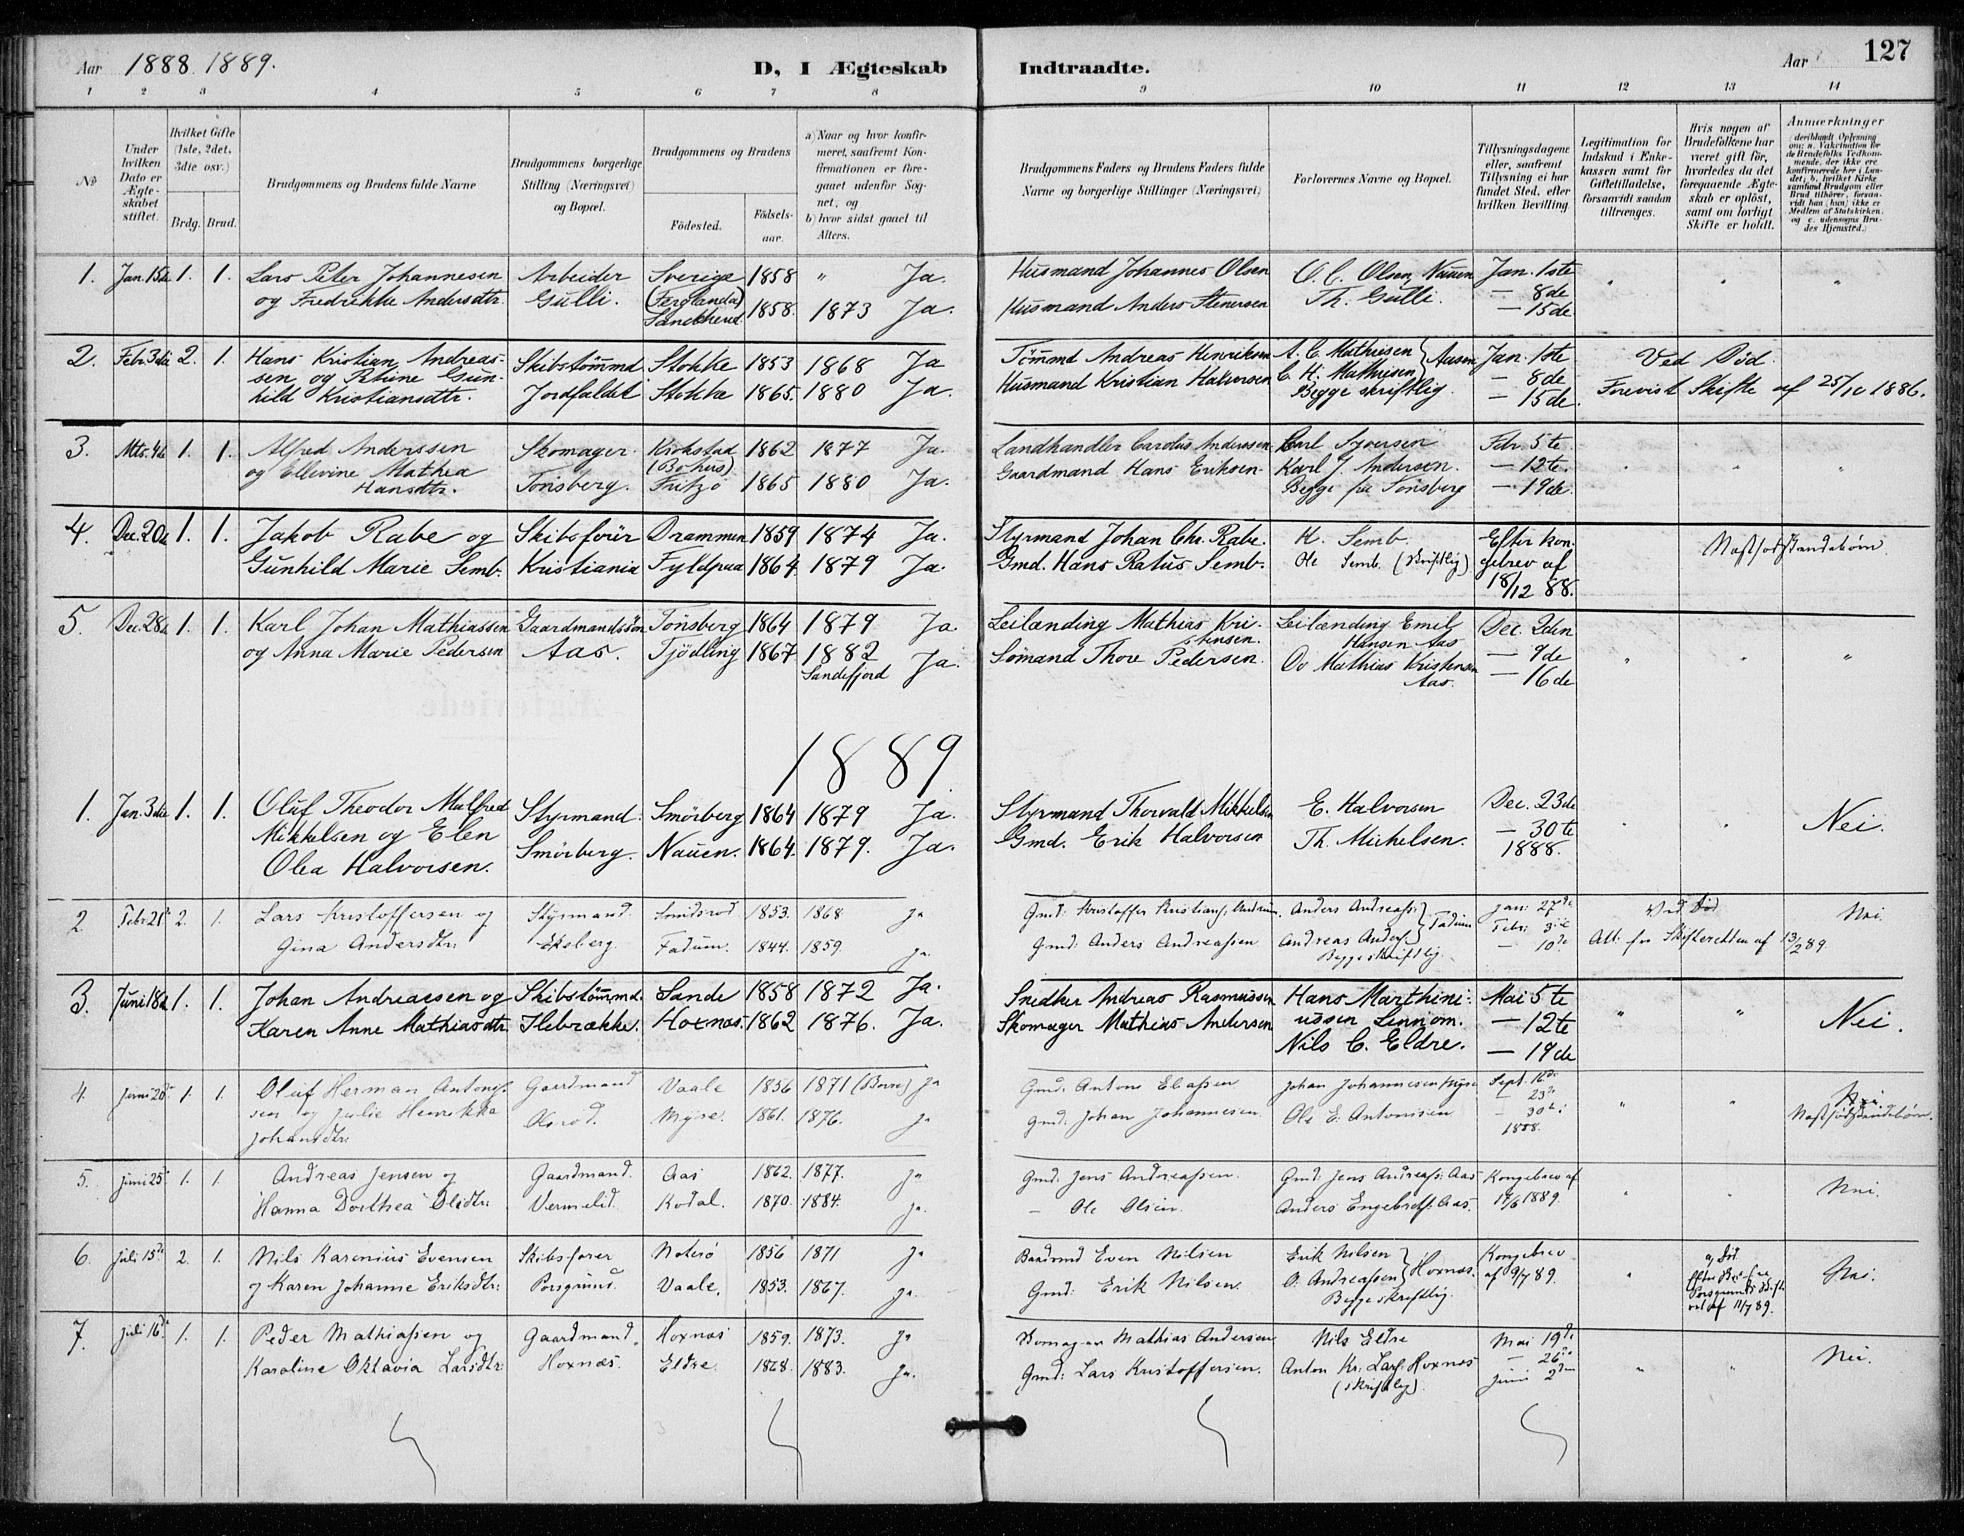 Aar 1888 1889.
D, I Ægteskab Indtraadte.
Aar 127
1 2 3 4 5 6 7 8 9 10 11 12 13 14
No
Under hvilken Dato er Ægteskabet stiftet.
Hvilket Gifte (1ste, 2det, 3die osv.)
Brdg. Brud.
Brudgommens og Brudens fulde Navne
Brudgommens borgerlige Stilling (Næringsvei) og Bopæl.
Brudgommens og Brudens
Fødested.
Fødsels-aar.
a) Naar og hvor konfirmeret, saafremt Konfirmationen er foregaaet udenfor Sognet, og
b) hvor sidst gaaet til Alters.
Brudgommens Faders og Brudens Faders fulde Navne og borgerlige Stillinger (Næringsvei)
Forlovernes Navne og Bopæl.
Tillysningsdagene eller, saafremt Tillysning ei har fundet Sted, efter hvilken Bevilling.
Legitimation for Indskud i Enkekassen samt for Giftetilladelse, forsaavidt saadan tiltrænges.
Hvis nogen af Brudefolkene har været gift før, hvorledes da det foregaaende Ægteskab er opløst, samt om lovligt Skifte er holdt.
Anmærkninger (deriblandt Oplysning om: a. Vakcination for de Brudefolks Vedkommende, der ikke ere konfirmerede her i Landet; b. hvilket Kirkesamfund Brudgom eller Brud tilhører, forsaavidt han (hun) ikke er Medlem af Statskirken, og c. udensogns Brudes Hjemsted.)
1. Jan. 15de 1. 1. Lars Peter Johannesen Arbeider Sverige 1858 " Ja. Husmand Johannes Olsen O. C. Olsen, Nauen Jan. 1ste " " "
og Fredrikke Andersdtr. Gulli. (Ferglanda) Sandeherred 1858. 1873 Ja. Husmand Anders Stenersen Th. Gulli. — 8de
— 15de
2. Febr. 3die 2. 1. Hans Kristian Andreas- Skibstømmd Stokke 1853 1868 Ja Tømmd Andreas Henriksen A. C. Mathiesen } Aasen Jan. 1ste Ved Død.
sen og Petrine Gun- Jordfaldet Stokke 1865. 1880 Ja. Husmand Kristian Halvorsen C. H. Mathisen — 8de Forevist Skifte af 25/10 1886.
hild Kristiansdtr. Begge skriftlig. — 15de.
3. Mts. 4de 1. 1. Alfred Anderssen Skomager. Krokstad 1862 1877 Ja. Landhandler Carolus Anderssen Carl Syversen Febr. 5te " " "
og Ellevine Mathea Tønsberg. (Bohus) Fritzø 1865 1880 Ja. Gaardmand Hans Eriksen Karl J. Andersen. — 12te.
Hansdtr. Begge fra Tønsberg — 19de.
4. Dec. 20de 1. 1. Jakob Rabe og Skibsfører Drammen 1859 1874 Ja. Styrmand Johan Chr. Rabe. H. Semb. Efter kon- Næstsødskendebørn.
Gunhild Marie Semb. Kristiania Fyldpaa 1864. 1879 Ja. Gmd. Hans Ratus Semb. Ole Semb. (Skriftlig) gebrev af
18/12 88.
5. Dec. 28de 1. 1. Karl Johan Mathiassen Gaardmandssøn Tønsberg 1864 1879 Ja. Leilænding Mathias Kri- Leilænding Emil Dec. 2den
og Anna Marie Pedersen Aas. Tjødling 1867 1882 Sandefjord Ja. stensen. Hansen Aas — 9de " " "
Sømand Thore Pedersen. Ov Mathias Kristensen Aas. — 16de
1889.
1. Jan. 3die 1. 1. Oluf Theodor Malfred Styrmand. Smörberg 1864 1879 Ja. Styrmand Thorvald Mikkelsen E. Halvorsen Dec. 23de " " Nei.
Mikkelsen og Elen Smörberg. Nauen. 1864. 1879. Ja. Gmd. Erik Halvorsen Th. Mickelsen. — 30te
Olea Halvorsen. 1888.
2. Febr 21de 2. 1. Lars Kristoffersen og Styrmand. Smidsrød 1853. 1868 Ja Gmd: Kristoffer Kristians. Anders Andreass: } Fadum Jan: 27de Ved Død Nei.
Gina Andersdtr: Eksberg. Fadum. 1844. 1859. Ja. Gmd: Anders Andreassen Andreas Anders. Febr: 3die Att: fra Skifteretten af 13/2 89.
Begge skriftlig. — 10de
3. Juni 18de 1. 1. Johan Andreassen og Skibstømmd. Sande 1858 1872 Ja. Snedker Andreas Rasmussen Hans Marthini- Mai 5te " " Nei.
Karen Anne Mathiasdtr. Ilebrække. Hoxnæs. 1862 1876. Ja. Skomager Mathias Andersen ussen Linnom. — 12te
Nils C. Eldre. — 19de
4. Juni 20de 1. 1. Oluf Herman Antoni- Gaardmand Vaale 1856 1871 (Borre) Ja Gmd. Antoni Eliassen Johan Johannesen Myre Sept. 16de " " Nei
sen og Julie Henrikka Myre. 1861. 1876. Ja Gmd: Johan Johannesen Ole E. Antonisen — 23de Næstsødskendebørn.
Johansdtr: — 30te
1888.
5. Juni 25de 1. 1. Andreas Jensen og Gaardmand. Aas 1862. 1877. Ja Gmd. Jens Andreassen. Gmd: Jens Andreass: Aas Kongebrev af " " Nei.
Hanna Dorthea Olsdtr: Vermelid. Kodal. 1870. 1884. Ja. — Ole Olsen. Anders Engebrets: Aas. 19/6 1889.
6. Juli 15de 2. 1. Nils Karenius Evensen Skibsfører Nøterø 1856 1871 Ja Baadsmd Even Nilsen Erik Nilsen } Hoxnæs. Kongebrev " v Død Nei.
og Karen Johanne Eriksdtr: Porsgrund. Vaale. 1853. 1867. Ja. Gmd: Erik Nilsen. O. Andreassen af 9/7 89. Porsgrunds Skifteret af 11/7 89.
Begge skriftlig.
7. Juli 16de 1. 1. Peder Mathiassen og Gaardmand. Hoxnæs 1859. 1873. Ja Skomager Mathias Andersen Nils Eldre Mai 19de " " Nei.
Karoline Oktavia Larsdtr: Hoxnæs. Eldre. 1868. 1883. Ja. Gmd: Lars Kristoffersen. Anton Kr. Lars. Hoxnæs — 26de
(skriftlig). Juni 2den